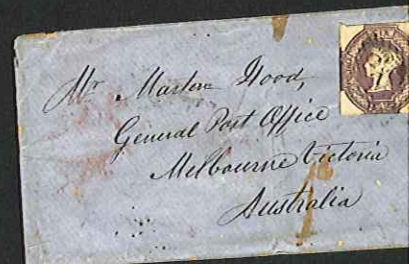 Mr Marten Hood,
General Post Office
Melbourne Victoria
Australia